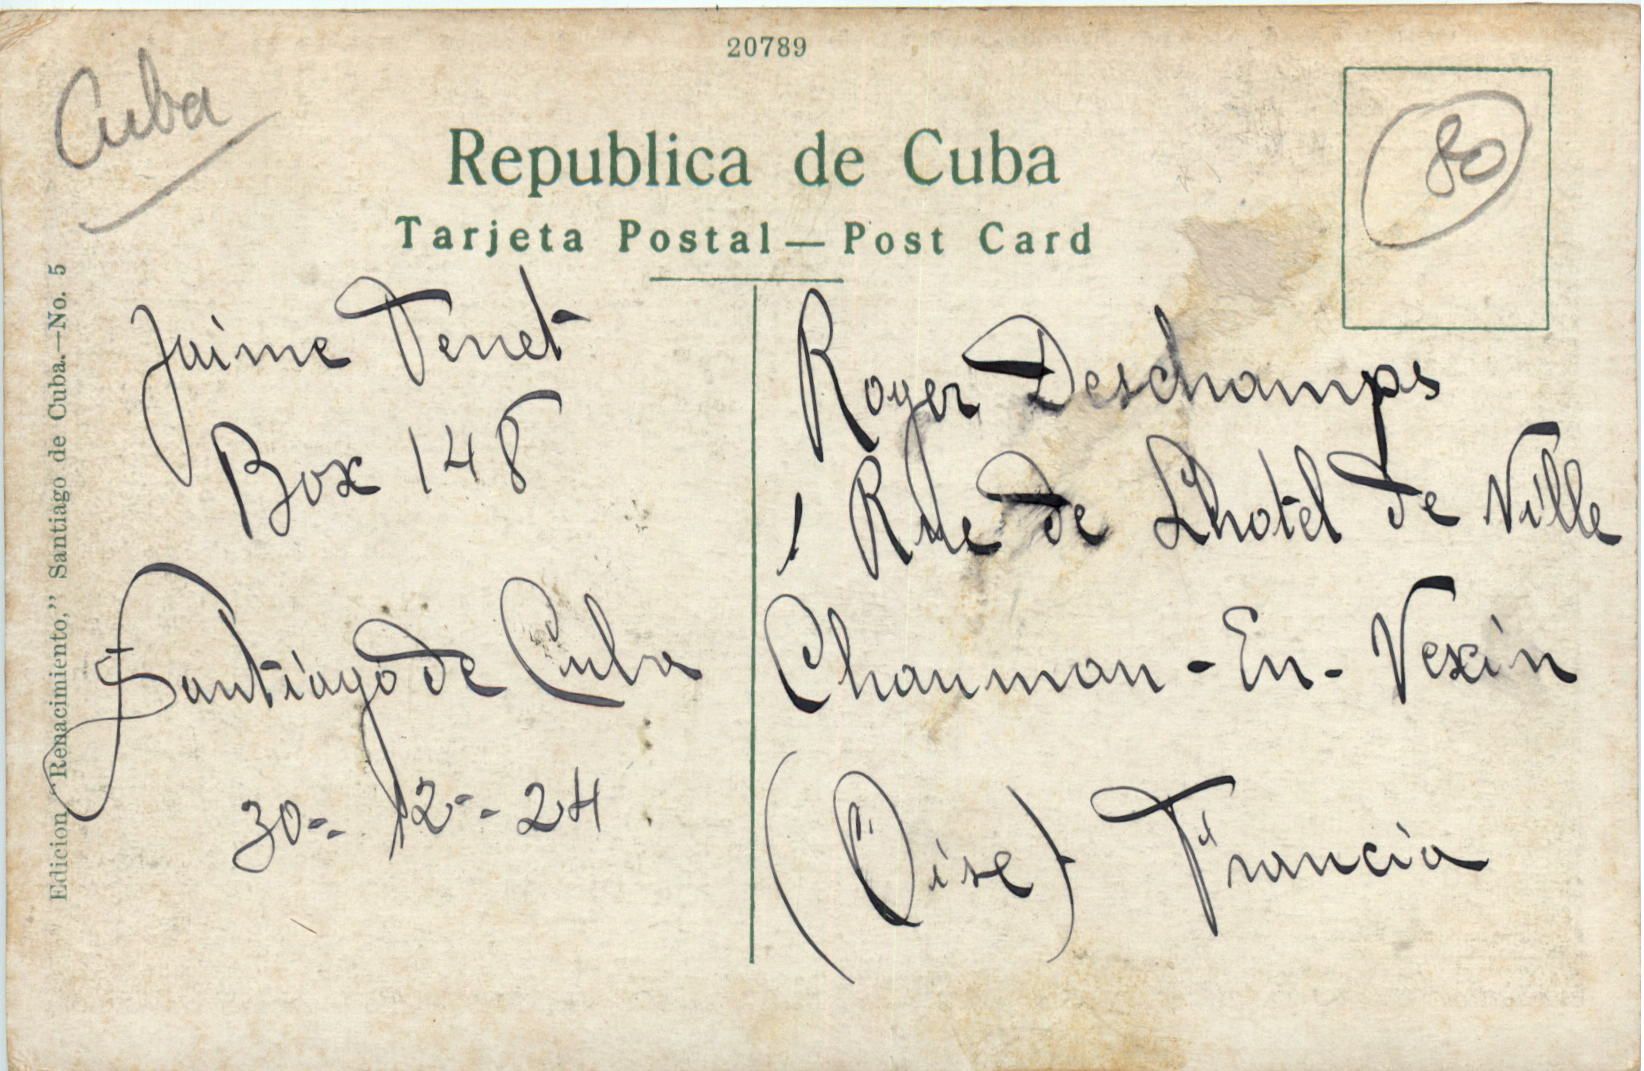 20789
Cuba
80
Republica de Cuba
Tarjeta Postal — Post Card
Edicion "Renacimiento," Santiago de Cuba.—No. 5
Jaime Tenet
Box 148
Santiago de Cuba
30-12-24
Roger Deschamps
1 Rue de Lhotel de Ville
Chauman-En-Vexin
(Oise) Francia